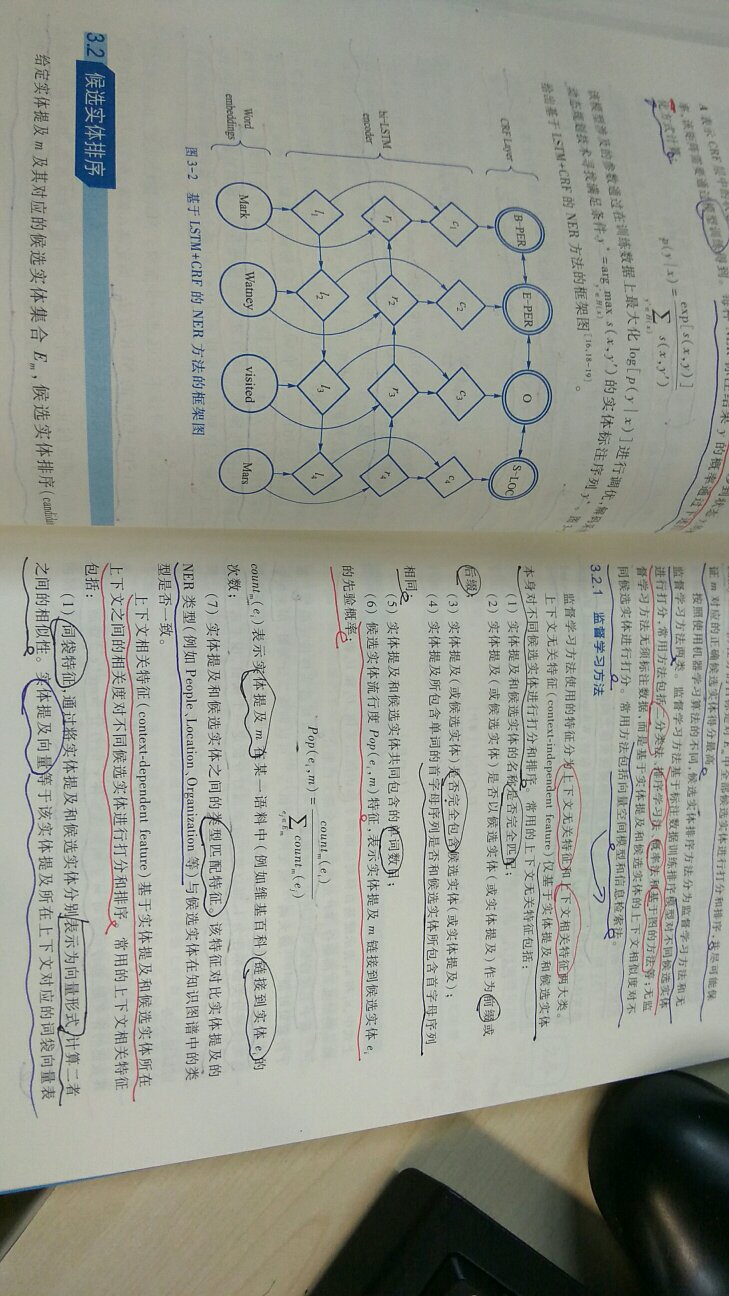 A 表示 CRF 层中的
率，该矩阵需要通过模型训练得到。
定方式计算：
p(y|x) = exp[s(x,y)] / ∑ s(x,y')
y'∈H(x)
该模型涉及的参数通过在训练数据上最大化 log[p(y|x)]进行调优，解码
动态规划技术寻找满足条件 y* = arg max s(x,y') 的实体标注序列 y*。
y'∈H(x)
给出基于 LSTM+CRF 的 NER 方法的框架图[16,18-19]。
CRF Layer
B-PER E-PER O S-LOC
c1 c2 c3 c4
bi-LSTM
encoder
r1 r2 r3 r4
l1 l2 l3 l4
Word
embeddings
Mark Watney visited Mars
图 3-2 基于 LSTM+CRF 的 NER 方法的框架图
3.2 候选实体排序
给定实体提及 m 及其对应的候选实体集合 Em，候选实体排序(candida
中全部候选实体进行打分和排序，并尽可能保
证 m 对应的正确候选实体得分最高。
按照使用机器学习算法的不同，候选实体排序方法分为监督学习方法和无
监督学习方法两类。监督学习方法基于标注数据训练排序模型对不同候选实体
进行打分，常用方法包括二分类法、排序学习法、概率法和基于图的方法等；无监
督学习方法无须标注数据，而是基于实体提及和候选实体的上下文相似度对不
同候选实体进行打分。常用方法包括向量空间模型和信息检索法。
3.2.1 监督学习方法
监督学习方法使用的特征分为上下文无关特征和上下文相关特征两大类。
上下文无关特征(context-independent feature)仅基于实体提及和候选实体
本身对不同候选实体进行打分和排序。常用的上下文无关特征包括：
(1) 实体提及和候选实体的名称是否完全匹配；
(2) 实体提及(或候选实体)是否以候选实体(或实体提及)作为前缀或
后缀；
(3) 实体提及(或候选实体)是否完全包含候选实体(或实体提及)；
(4) 实体提及所包含单词的首字母序列是否和候选实体所包含首字母序列
相同；
(5) 实体提及和候选实体共同包含的单词数目；
(6) 候选实体流行度 Pop(ei,m)特征，表示实体提及 m 链接到候选实体 ei
的先验概率：
Pop(ei,m) = countm(ei) / ∑ countm(ej)
ej∈Em
countm(ei)表示实体提及 m 在某一语料中(例如维基百科)链接到实体 ei 的
次数；
(7) 实体提及和候选实体之间的类型匹配特征。该特征对比实体提及的
NER 类型(例如 People、Location、Organization 等)与候选实体在知识图谱中的类
型是否一致。
上下文相关特征(context-dependent feature)基于实体提及和候选实体所在
上下文之间的相关度对不同候选实体进行打分和排序。常用的上下文相关特征
包括：
(1) 词袋特征，通过将实体提及和候选实体分别表示为向量形式，计算二者
之间的相似性。实体提及向量等于该实体提及所在上下文对应的词袋向量表